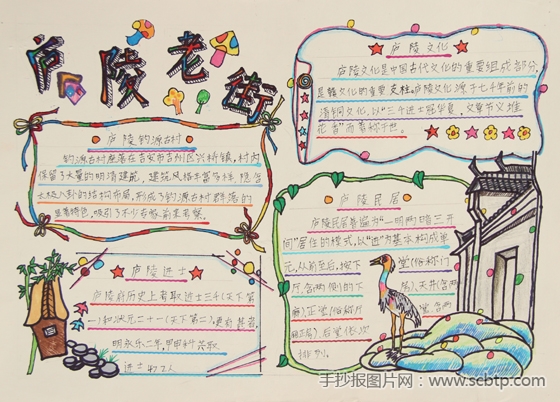 庐陵老街
庐陵文化
庐陵文化是中国古代文化的重要组成部分,
是赣文化的重要支柱。庐陵文化源于七千年前的
陶文化,以"三千进士冠华夏,文章节义堆
花香"而著称于世。
庐陵钓源古村
钓源古村座落在吉安市吉州区兴桥镇,村内
保留了大量的明清建筑,建筑风格丰富多样,隐含
太极八卦的结构布局,形成了钓源古村群落的
显著特色,吸引了不少有识前来考察。
庐陵民居
庐陵民居普遍为"一明两暗三开
间"居住的模式,以"进"为基本构成单
元,从前至后,按下堂(俗称门
厅,含两侧的下房)、天井(含两
厢)、正堂(俗称厅,含两
正房)、后堂依次
排列。
庐陵进士
庐陵府历史上考取进士三千(天下第
一)和状元二十一(天下第二),更有甚者,
明永乐二年,甲申科共取
进士472人
手抄报图片网:www.scbtp.com